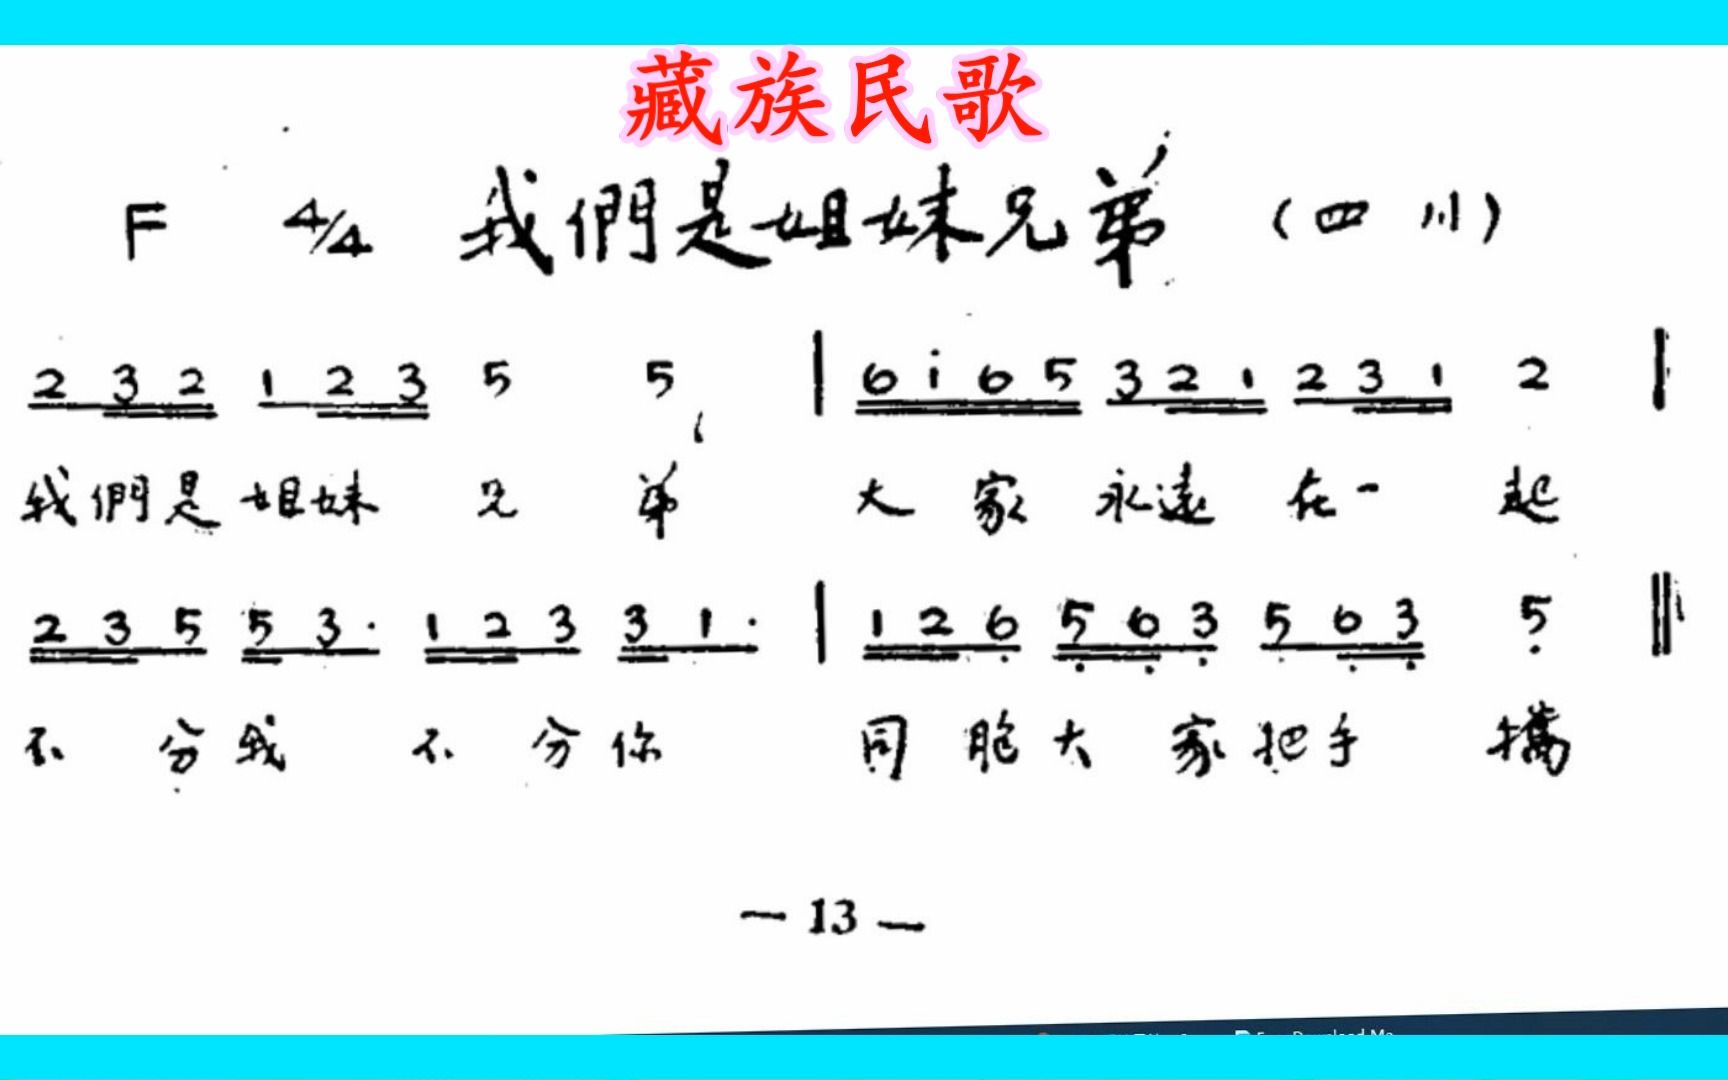 藏族民歌
F 4/4 我們是姐妹兄弟 (四川)
2 3 2 1 2 3 5 5 | 6 i 6 5 3 2 1 2 3 1 2 |
我們是姐妹兄弟 大家永遠在一起
2 3 5 5 3· 1 2 3 3 1· | 1 2 6 5 6 3 5 6 3 5 ‖
不分我不分你 同胞大家把手攜
— 13 —